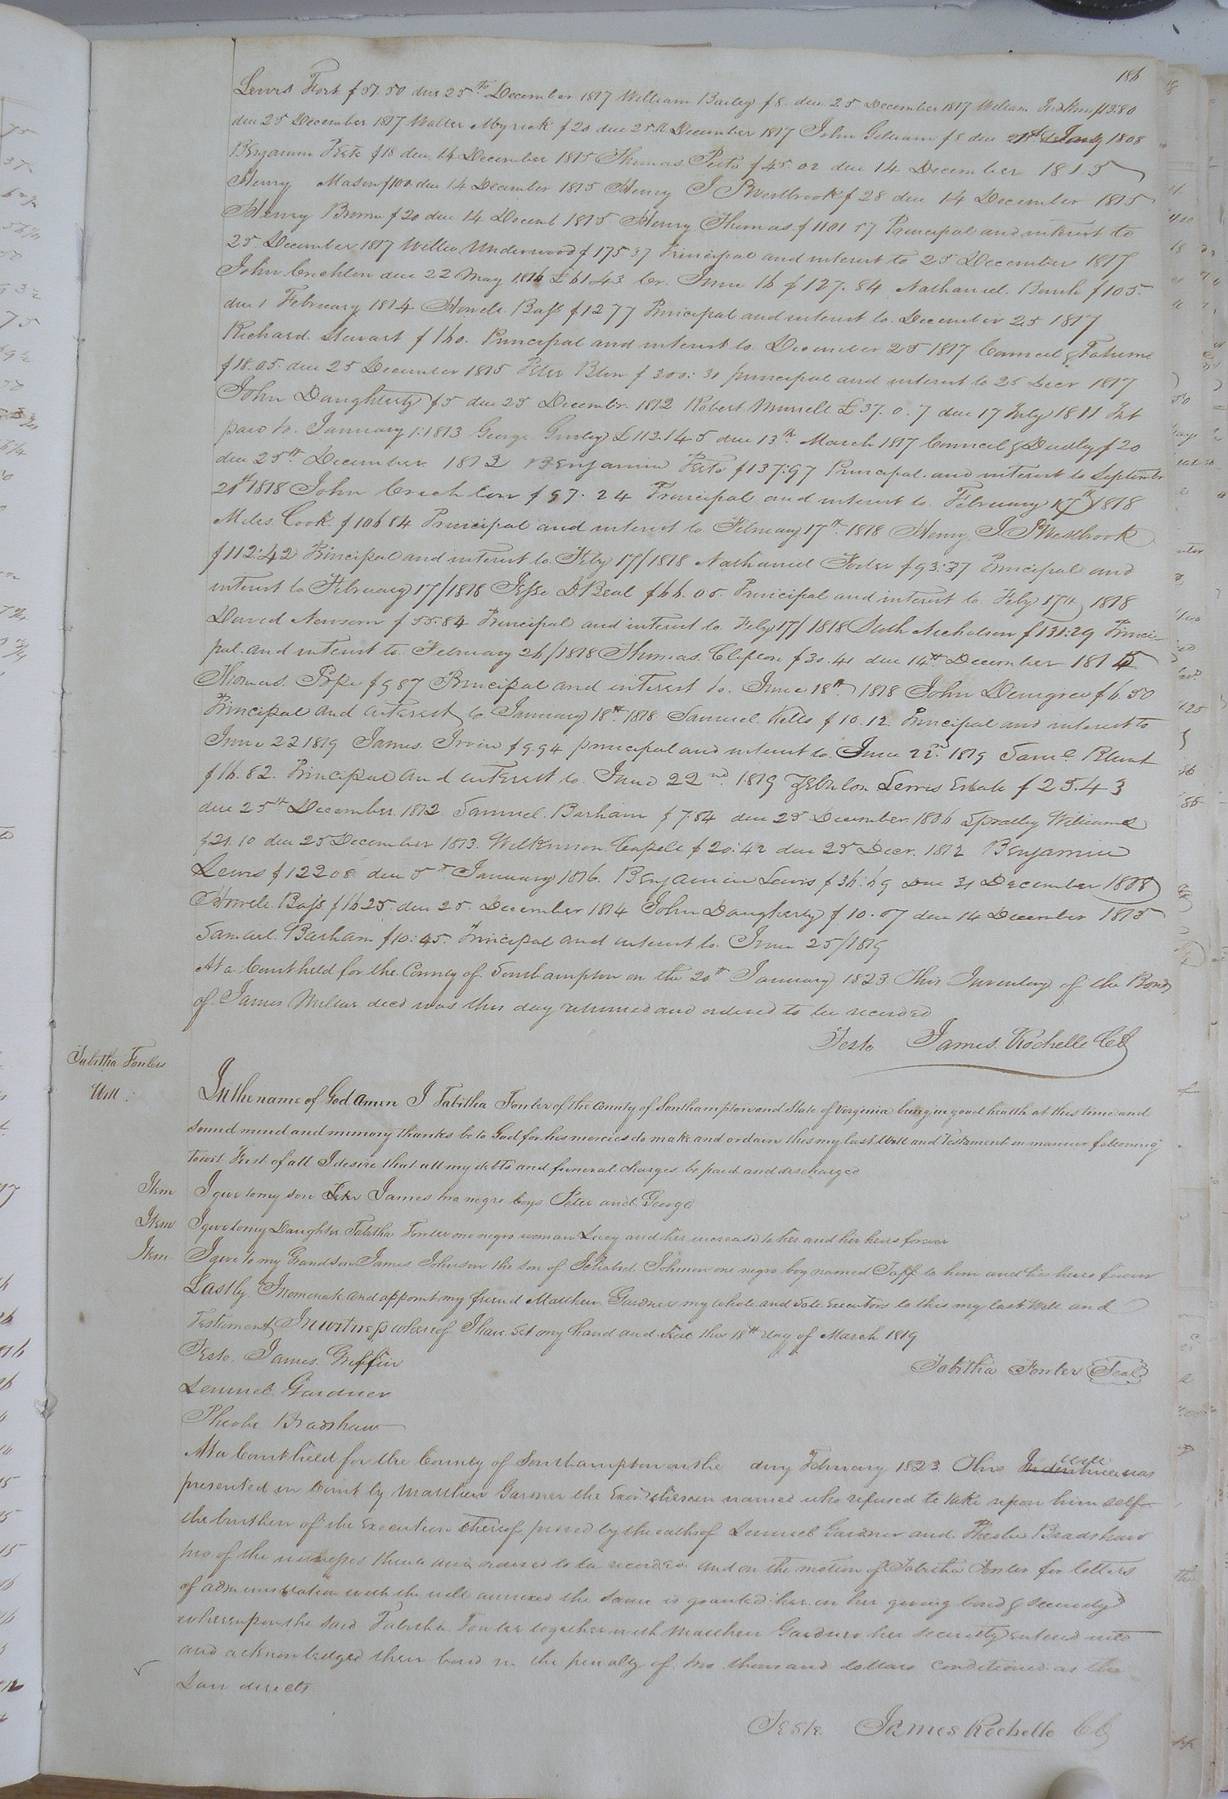 186
Lewis Fort $57.50 due 25th December 1817 William Bailey $8. due 25 December 1817 William $13.80
due 25 December 1817 Walter Myrick $20 due 25th December 1817 John Gilliam $8 due 1808
Benjamin Peete $18 due 14 December 1815 Thomas Peete $45.02 due 14 December 1815
Henry Mason $100 due 14 December 1815 Henry J P Westbrook $28 due 14 December 1815
Henry Brown $20 due 14 Decemb 1815 Henry Thomas $1101 57 Principal and interest to
25 December 1817 Willie Underwood $175 37 Principal and interest to 25 December 1817
John Crichlow due 22 May 1816 £61.43 Cr. June 16 $127.84 Nathaniel $105.
due 1 February 1814 Howell Bass $12 77 Principal and interest to December 25 1817
Richard Stewart $160. Principal and interest to December 25 1817 Council & Tatume
$18.05 due 25 December 1815 Peter Blow $300:31 principal and interest to 25 Decr 1817
John Daughtery $5 due 25 Decembr. 1812 Robert Murrell £37.0.7 due 17 July 1811 Int
paid to January 1: 1813 George Gurley £112.14.5 due 13th March 1817 Council & Dudley $20
due 25th December 1812 Benjamin Peete $137:97 Principal and interest to Septembr
21st 1818 John Crichlow $97.24 Principal and interest to February 17th 1818
Miles Cook $106 84 Principal and interest to February 17th 1818 Henry J P Westbrook
$112:42 Principal and interest to Feby 17/1818 Nathaniel Foster $93:37 Principal and
interest to February 17/1818 Jesse D Beal $66.05 Principal and interest to Feby 17th 1818
David Newsom $55.84 Principal and interest to Feby 17/1818 Seth Nicholson $131:29 Princi-
pal and interest to February 26/1818 Thomas Clifton $30.41 due 14th December 1815
Thomas Pope $987 Principal and interest to June 18th 1818 John Denegre $6.50
Principal and interest to January 18th 1818 Samuel Kello $10.12 Principal and interest to
June 22 1819 James Irvin $9.94 principal and interest to June 22nd 1819 Saml Blunt
$16.82. Principal and interest to June 22nd 1819 Zebulon Lewis Estate $25.43
due 25th December 1812 Samuel Barham $7.84 due 25 December 1806 Spratley Williams
$21.10 due 25 December 1813 Wilkinson Capell $20:42 due 25 Decr. 1812 Benjamin
Lewis $122 08 due 5th January 1816. Benjamin Lewis $36:69 Due 31 December 1808
Howell Bass $16 25 due 25 December 1814 John Daugherty $10.07 due 14 December 1815
Samuel Barham $10:45. Principal and interest to June 25/1819
At a Court held for the County of Southampton on the 20th January 1823 This Inventory of the Bonds
of James Wilkins decd was this day returned and ordered to be recorded
Teste James Rochelle CC
Tabitha Fowlers
Will
In the name of God Amen I Tabitha Fowler of the County of Southampton and State of Virginia being in good health at this time and
sound mind and memory thanks be to God for his mercies do make and ordain this my last Will and Testament in manner following
towit First of all I desire that all my debts and funeral charges be paid and discharged
Item I give to my son James two negro boys Peter and George
Item I give to my Daughter Tabitha Fowler one negro woman Lucy and her increase to her and her heirs forever
Item I give to my Grandson James Johnson the son of Johnson one negro boy named Taff to him and his heirs forever
Lastly I nominate and appoint my friend Matthew Gardner my whole and sole Executor to this my last Will and
Testament In witness whereof I have set my hand and seal this 18th day of March 1819
Teste James Griffin
Tabitha Fowler Seal
Lemuel Gardner
Pheobe Bradshaw
At a Court held for the County of Southampton on the day February 1823. This Indenture will was
presented in Court by Matthew Gardner the Exor therein named who refused to take upon himself
the burthen of the Execution thereof proved by the oaths of Lemuel Gardner and Pheobe Bradshaw
two of the witnesses thereto and ordered to be recorded and on the motion of Tabitha Fowler for letters
of administration with the will annexed the same is granted her on her giving bond & security
whereupon the said Tabitha Fowler together with Matthew Gardner her security entered into
and acknowledged their bond in the penalty of two thousand dollars conditioned as the
Law directs
Teste James Rochelle CC